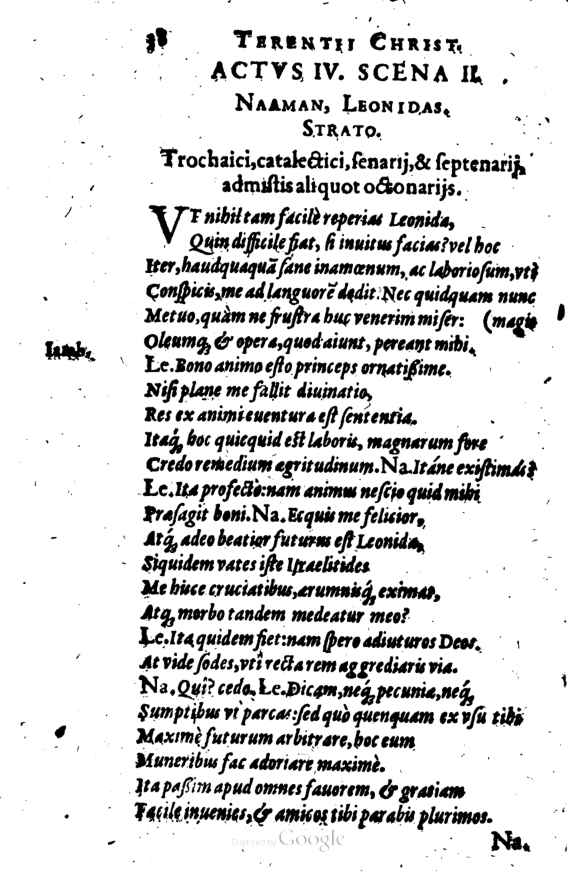 38 TERENTII CHRIST.
ACTVS IV. SCENA II.
NAAMAN, LEONIDAS.
STRATO.
Trochaici, catalectici, senarij, & septenarij,
admistis aliquot octonarijs.
VT nihil tam facilè reperias Leonida,
Quin difficile fiat, si inuitus facias? vel hoc
Iter, haudquaquā sane inamœnum, ac laboriosum, vti
Conspicis, me ad languorē dedit. Nec quidquam nunc
Metuo, quàm ne frustra huc venerim miser: (magis
Iamb. Oleumq́, & opera, quod aiunt, pereant mihi.
Le. Bono animo esto princeps ornatißime.
Nisi plane me fallit diuinatio,
Res ex animi euentura est sententia.
Itaq́, hoc quicquid est laboris, magnarum fore
Credo remedium ægritudinum. Na. Itáne existimás?
Le. Ita profecto: nam animus nescio quid mihi
Præsagit boni. Na. Ecquis me felicior,
Atq́, adeo beatior futurus est Leonida,
Siquidem vates iste Israelitides
Me hisce cruciatibus, ærumnisq́, eximat,
Atq́, morbo tandem medeatur meo?
Le. Ita quidem fiet: nam spero adiuturos Deos.
At vide sodes, vti recta rem aggrediaris via.
Na. Qui? cedo. Le. Dicam, neq́, pecuniæ, neq́,
Sumptibus vt parcas: sed quò quenquam ex vsu tibi
Maximè futurum arbitrare, hoc eum
Muneribus fac adoriare maximè.
Ita paßim apud omnes fauorem, & gratiam
Facile inuenies, & amicos tibi parabis plurimos.
Na.
Digitized by Google